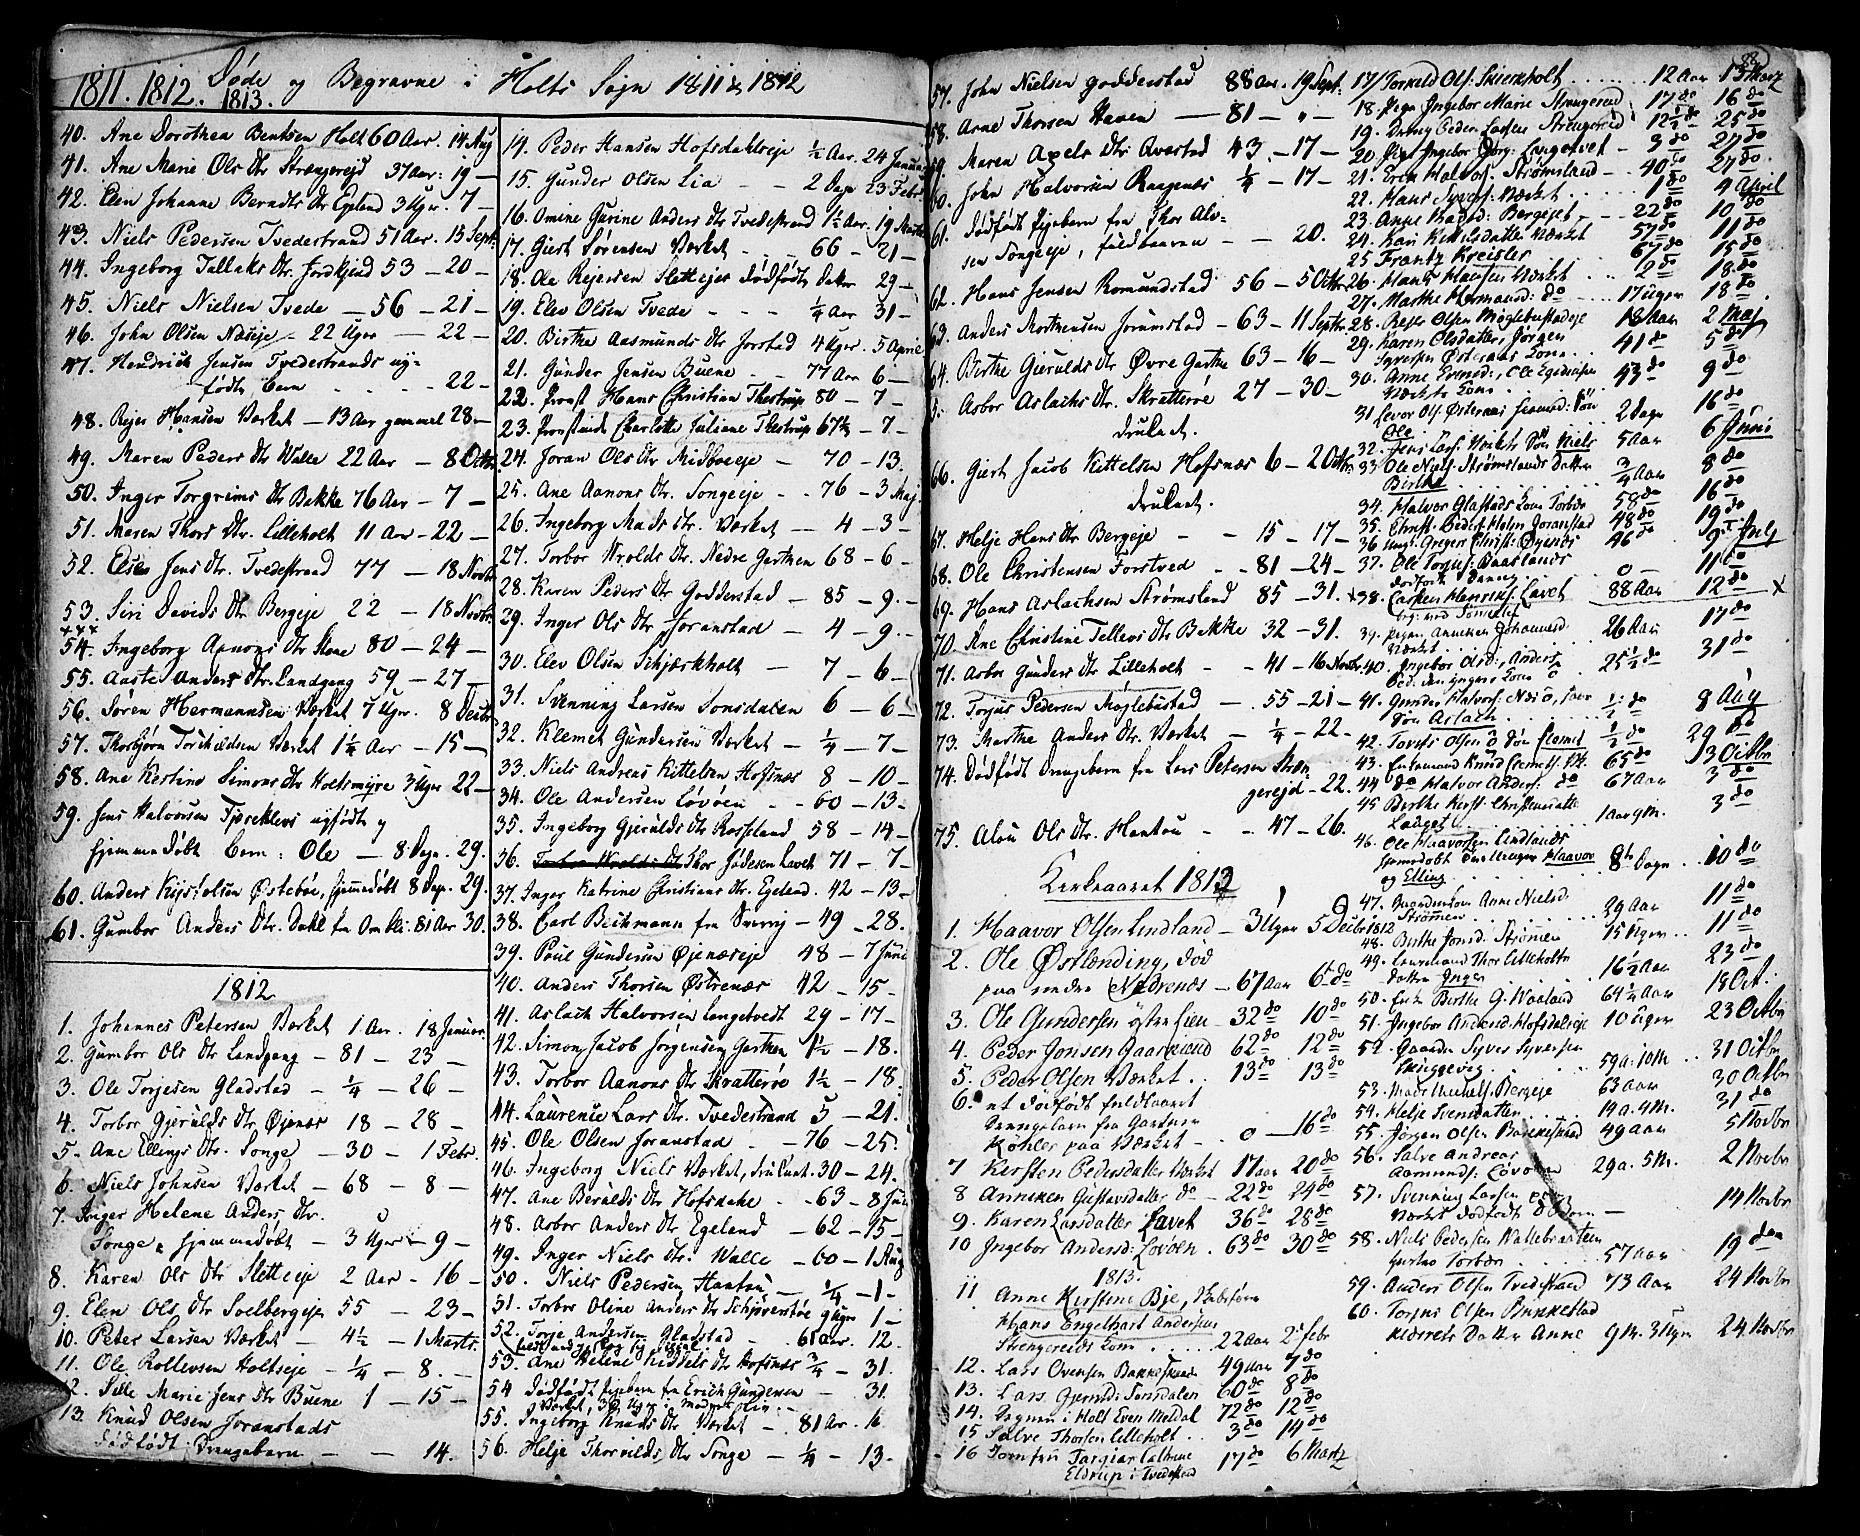 1811. 1812. Døde og Begravne i Holts Sogn 1811 & 1812
1813.
40. Ane Dorothea Bentsen Holt 60 Aar. 14 Aug
41. Ane Marie Ols Dtr Strængerejd 37 Aar: 19 —
42. Elen Johanne Berndts Dtr Egeland 3 Uger. 7 —
43. Niels Pedersen Tvedestrand 51 Aar. 15 Sept:
44. Ingeborg Tallaks Dtr. 53 — 20 —
45. Niels Nielsen Tvede — 56 — 21 —
46. John Olsen Næseje — 22 Uger — 22 —
47. Hendrich Jensen Tvedestrands ny-
fødte barn - - - 22 —
48. Rejer Hansen Værket — 13 Aar gammel 28 —
49. Maren Peders Dtr Walle 22 Aar — 8 Octbr
50. Inger Torgrims Dtr Bekke 76 Aar — 7 —
51. Maren Thors Dtr. Lilleholt 11 Aar — 22 —
52. Elsen Jens Dtr. Tvedestrand 77 — 18 Novbr
53. Siri Davids Dtr Bergeje 22 — 18 Novbr
54. Ingeborg Aanons Dtr Stene 80 — 24 —
55. Aaste Anders Dtr. Landgang 59 — 27 —
56. Søren Hermannsen Værket 7 Uger. 8 Decbr
57. Thorbjørn Torkildsen Værket 1¼ Aar — 15 —
58. Ane Kirstine Simons Dtr Holtsmyre 3 Uger 22 —
59. Jens Halvorsen Fjæreklevs nyfødte og
hjemmedøbt barn: Ole — 8 Dage. 29.
60. Anders Østebøe, hjemmedøbt 8 Dage. 29.
61. Gumbor Anders Dtr. Dahl fra Omlie: 81 Aar 30.
1812
1. Johannes Petersen Værket 1 Aar. 18 Januar.
2. Gumbor Ols Dtr Landgang — 81 — 23 —
3. Ole Torjesen Gladstad — ¼ — 26 —
4. Torbor Gjerulds Dtr. Øjenæs 18 — 28 —
5. Ane Ellings Dtr. Songe — 30 — 1 Febr.
6. Niels Johnsen Værket — 68 — 8 —
7. Inger Helene Anders Dtr.
Songe, hjemmedøbt — 3 Uger — 9 —
8. Karen Ols Dtr Sletteje 2 Aar — 16 —
9. Elen Ols Dtr Soelbergeje 55 — 23 —
10. Peter Larsen Værket — 4½ — 1 Marts.
11. Ole Rollevsen Holtseje — ¼ — 8. —
12. Sille Marie Jens Dtr Buene 1 — 15 —
13. Knud Olsen Joranstads
dødfødt Drengebarn — — 14.
14. Peder Hansen Hofsdahlseje ½ Aar. 24 Januar
15. Gunder Olsen Lia - - 2 Dage 23 Febr.
16. Omine Gurine Anders Dtr Tvedestrand 1½ Aar. 19 Marts
17. Giert Sørensen Værket - - 66 — 21 —
18. Ole Rejersen Slettejes dødfødte Datter 29 —
19. Elev Olsen Tvede - - - ¼ Aar 31 —
20. Birthe Aasmunds Dtr Jorstad 4 Uger. 5 Aprill
21. Gunder Jensen Buene - - 77 Aar 6 —
22. Provst Hans Christian Thestrup 80 — 7 —
23. Provstinde Charlotte Juliane Thestrup 67½ — 7 —
24. Joran Ols Dtr Midboeje — 70 — 13.
25. Ane Aanons Dtr. Songeeje - - 76 — 3 Maj
26. Ingeborg Mads Dtr. Værket — 4 — 3 —
27. Torbor Wrolds Dtr. Nedre Garthen 68 — 6 —
28. Karen Peders Dtr Godderstad — 85 — 9. —
29. Inger Ols Dtr Joranstad — 4 — 9. —
30. Elev Olsen Schjærkholt — 7 — 6 —
31. Svenning Larsen Sonsdalen 6 — 6 —
32. Klemet Gundersen Værket — ¼ — 7 —
33. Niels Andreas Kittelsen Hofsnæs 8 — 10 —
34. Ole Andersen Løvøen - - 60 — 13 —
35. Ingeborg Gjerulds Dtr Rosseland 58 — 14 —
36. Torbor Wrolds Dtr Thor Jodesen Lavet 71 — 7 —
37. Inger Katrine Christians Dtr. Egeland. 42 — 13 —
38. Carl Beckmann fra Sverrig — 49 — 28.
39. Poul Gundersen Øjenæseje 48 — 7 Juni
40. Anders Thorsen Østrenæs 42 — 15 —
41. Aslach Halvorsen Langetvedt 29 — 17 —
42. Simon Jacob Jørgensen Garthen 1½ — 18.
43. Torbor Aanons Dtr Skratterøe 1½ — 18.
44. Laurense Lars Dtr. Tvedestrand 5 — 21.
45. Ole Olsen Joranstad - — 76 — 25.
46. Ingeborg Niels Værket, druknet. 30 — 24.
47. Ane Berulds Dtr Hofsdahl - - 63 — 8 Juli
48. Arbor Anders Dtr Egeland — 62 — 15 —
49. Inger Niels Dtr. Walle — 60 — 1 Aug
50. Niels Pedersen Hantou — ¼ — 1 —
51. Torbor Oline Anders Dtr Schjoverstøe 9 Uger 1 —
52. Torje Andersen Gladstad — 61 Aar. 12.
53. Ane Helene Kiddels Dtr Hofsnæs ¾ — 31.
54 Dødfødt Pigebarn fra Erich Gundersen — 31.
55. Ingeborg Knuds Dtr Værket — 81 Aar. 16
56. Helje Thorvilds Dtr Songe — ¼ — 13.
57. John Nielsen Godderstad 88 Aar. 19 Sept:
58. Arne Thorsen Haven — 81 — " —
59. Maren Axels Dtr Qvæstad 43. — 17 —
60. John Halvorsen Raagenæs ¼ — 17 —
61. Dødfødt Pigebarn fra Thor Alv-
sen Songeeje, fuldbaaren — — 20.
62. Hans Jensen Romundstad 56 — 5 Octbr
63. Anders Morthensen Jorumstad — 63 — 11 Septr.
64. Birthe Gjerulds Dtr Øvre Garthe 63 — 16 —
5. Arbor Aslachs Dtr. Skratterøe 27 — 30 —
druknet.
66. Giert Jacob Kittelsen Hofsnæs 6 — 2 Octbr
druknet.
67. Helje Hans Dtr Bergeje - - 15 — 17 —
68. Ole Christensen Forstved - - 81 — 24 —
69. Hans Aslachsen Strømsland 85 — 31.
70. Ane Christine Tellevs Dtr Bekke 32 — 31.
71. Arbor Gunders Dtr Lilleholt - - 41 — 16 Novbr.
72. Torjus Pedersen Møglebustad — 55 — 21 —
73. Marthe Anders Dtr. Værket — ¼ — 22 —
74. Dødfødt Drengebarn fra Lars Petersen Stræn-
gerejd — 22.
75. Alou Ols Dtr. Hantou - - 47 — 26.
Kirkeaaret 1813
1. Haavor Olsen Lindland — 3 Uger 5 Decbr 1812
2. Ole Østlænding, død
paa søndre Nedrenæs — 67 Aar 6 do
3. Ole Gundersen østre Lien — 32 do 10 do
4. Peder Jonsen Gaaslund 62 do 12 do
5. Peder Olsen Værket.. 13 do 13 do
6. et dødfødt fuldbaaret
Drengebarn fra Gartner
Köhler paa Værket — . 0 — 16 do
7 Kersten Pedersdatter Værket 17 aar 20 do
8 Anneken Gustavsdatter do — 22 do 24 do
9. Karen Larsdatter Lavet 36 do 28 do
10 Ingebor Andersd: Løvøen . 63 do 30 do
1813.
11 Anne Kirstine Bye,
Hans Engelhart Andersens
Strengereids Kone . . . 22 aar 2 Febr
12. Lars Ovensen Bakkestrand 49 aar 7 do
13. Lars Gjermds: Sonsdalen 60 do 8 do
14. i Holt Even Meldal 72 do 12 do
15 Salve Thorsen Lilleholt . . 3 do 14 do
16 Jomfru Cathrine
Eldrup i Tvedestrand 17 do 6 Martz
17/ Torkeld Ols: Skierkholt . . . . . . 12 Aar 13 Martz
18. Pigen Ingebor Marie Strengereid 17 do 16 do
19. Dreng Peder Larsen Strengereid 12½ do 25 do
20. Pige Ingebor Jørg: Langetvet — 3 do 27 do
21. Erik Halvors: Strømsland — 40 do 27 do.
22. Hans Syvers: Værket . . . . . 1 do 4 April
23. Anne Bergejet — — 22 do 10 do
24. Kari Kittilsdatter Værket 57 do 11 do
25 Frantz Kreisler . . . . . 67 do 15 do
26. Hans Hansen Værket . . . 2 do 18 do
27. Marthe Hermansd: do . . . . 17 Uger 18 do
28. Rejer Olsen Møglebustadeje 18 Aar 2 Maj
29. Karen Olsdatter, Jørgen
Syversen Østeraas Kone . . . 41 do 5 do
30. Anne Evensd:, Ole Egidiusen
Værkets Kone . . . 43 do 9 do
31 Levor Ols: Østernæs hjemmed: Søn
Ole . . . 2 Dage 16 do
32. Jens Lars: Søn Niels 5 Aar 6 Juni
33. Ole Niels: Strømslands Datter
Birthe . . . . . . ¾ Aar 8 do
34. Halvor Gladstads Kone Torbor 58 do 16 do
35. Christ: Peders: Holm Joranstad 48 do 19 do
36. Ung: Gregers Christ: Øyenæs 46 do 9 July
37. Ole Torjus: Daaslands
dødfødte Dreng . . . . . 0 — 11 do
×38. Carsten Henriks: Lavet 88 Aar 12 do ×
39. Pigen Anneken Johannesd
Værket . . . . . 26 Aar 17 do
40. Ingebor Olsd:, Anders
Ped: den yngres Kone . . 25½ do 31 do
41. Gunder Halvors:
Søn Aslach . . . . . . ½ do 8 Aug
42. Torjes Olsen Søn Clemet ½ do 29 do
43. Enkemand Knud Clemets: 65 do 3 Octbr
44 do Halvor Anders: do 67 Aar 3 do
45 Berthe Kirst: Christensdatter
Langet . . . . 1 aar 9 M. 3 do
46. Ole Haavorsen Lindlands
hjemdøbt Haavor
og Elling . . . . . . 8te Dagen . . 10 do
47. Anne Nielsd
Strømen . . . . . . . 39 Aar 11 do
48. Berthe Jonsd: Strømen 15 Uger . . 11 do
49. Thor Lilleholts
datter Inger . . . 16½ Aar 23 do
50. Enke Berthe G: Waaland 64¼ Aar 18 Oct:
51. Ingebor Andersd: Hofsdaleje 10 Uger 23 Octbr
52. Syver Syversen
Skiggevig . . . . . 59 a: 10 M . . 31 Octbr
53. Bergeje 63 Aar 30 Octbr
54. Helje Svensdatter . . . 19 a. 4 M. 31 do
55. Jørgen Olsen Bakkestrand 49 Aar 5 Novbr
56. Salve Andreas
Aasmunds: Løvøen 29 a. 5 M. 2 Novbr
57. Svenning Larsen
Værkets dødfødte 14 Novbr
58. Niels Pedersen
hustro Torbor . . 57 aar 19 den
59. Anders Olsen Tvedestrand 73 Aar 24 Novbr
60. Torjus Olsen Bakkestad
Datter Anne 9 M. 3 Uger 24 Novbr